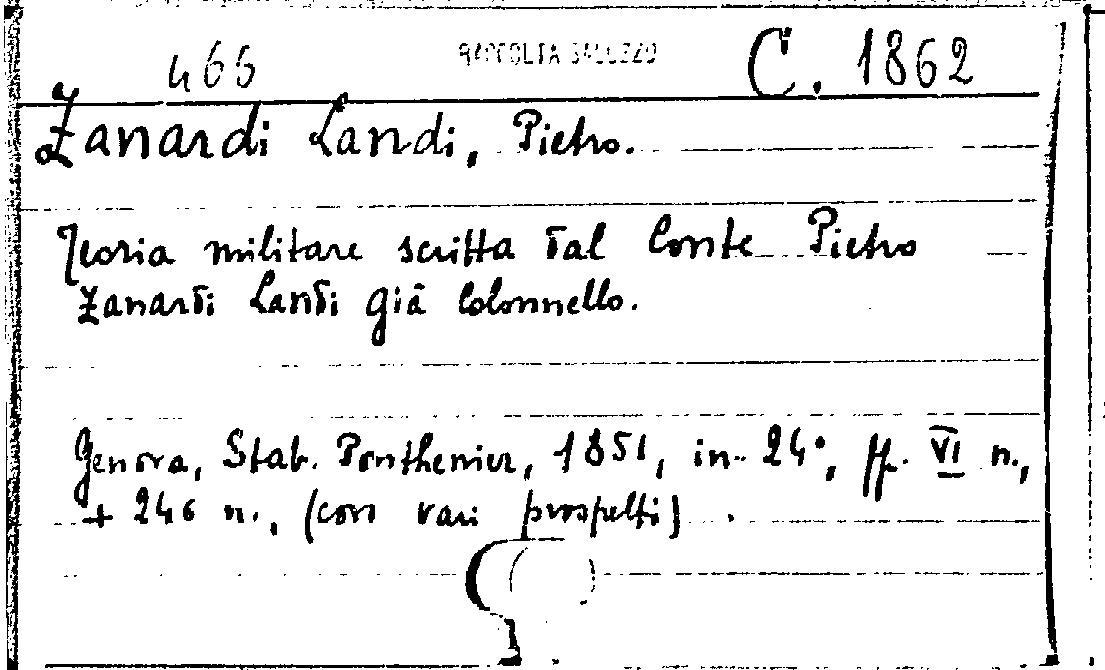 466 RACCOLTA GALLEZZO C. 1862
Zanardi Landi, Pietro.
Teoria militare scritta dal Conte Pietro
Zanardi Landi già Colonnello.
Genova, Stab. Ponthenier, 1851, in-24°, ff. VI n.,
+ 246 n., (con vari prospetti).